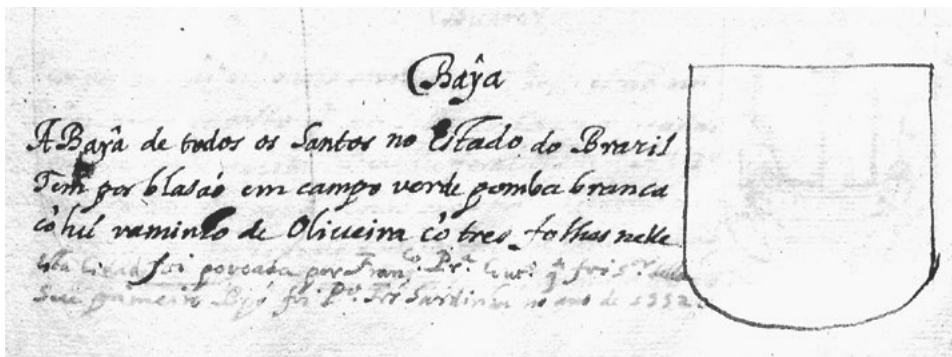 Baŷa
A Baŷa de todos os Santos no Estado do Brazil
Tem por blasaõ em campo verde pomba branca
cõ hũ raminho de Oliveira cõ tres folhas nelle
foi povoada por Fran.co Pr.a Cout.o q̃ foi s.r
Seu primeiro Bpõ foi P.o Frz Sardinha no ano de 1552.